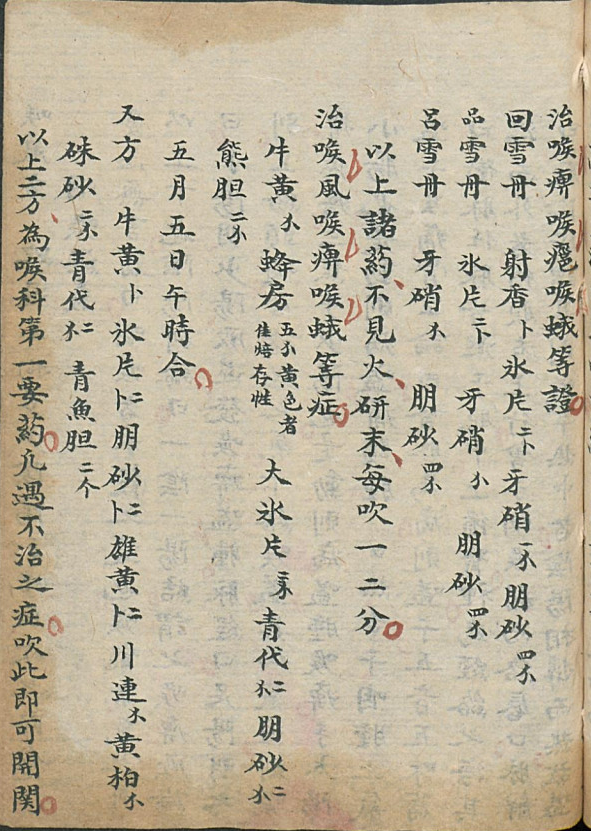 治喉痹喉𤺥喉蛾等證
回雪丹 射香卜 氷片二卜 牙硝 朋砂四
品雪丹 氷片二卜 牙硝 朋砂四
呂雪丹 牙硝 朋砂四
以上諸藥不見火研末每吹一二分
治喉風喉痹喉蛾等症
牛黄 蜂房五 黄色者佳焙存性 大氷片 青代二 朋砂二
熊胆二
五月五日午時合
又方 牛黄卜 氷片卜二 朋砂卜二 雄黄卜二 川連 黄柏
硃砂 青代二 青魚胆二个
以上二方為喉科第一要藥凢遇不治之症吹此即可開関